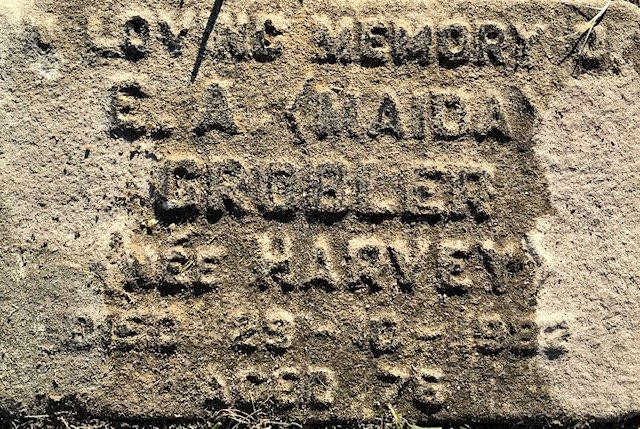 LOVING MEMORY O
E. A. (MAIDA)
GROBLER
NÉE HARVEY
DIED 29
AGED